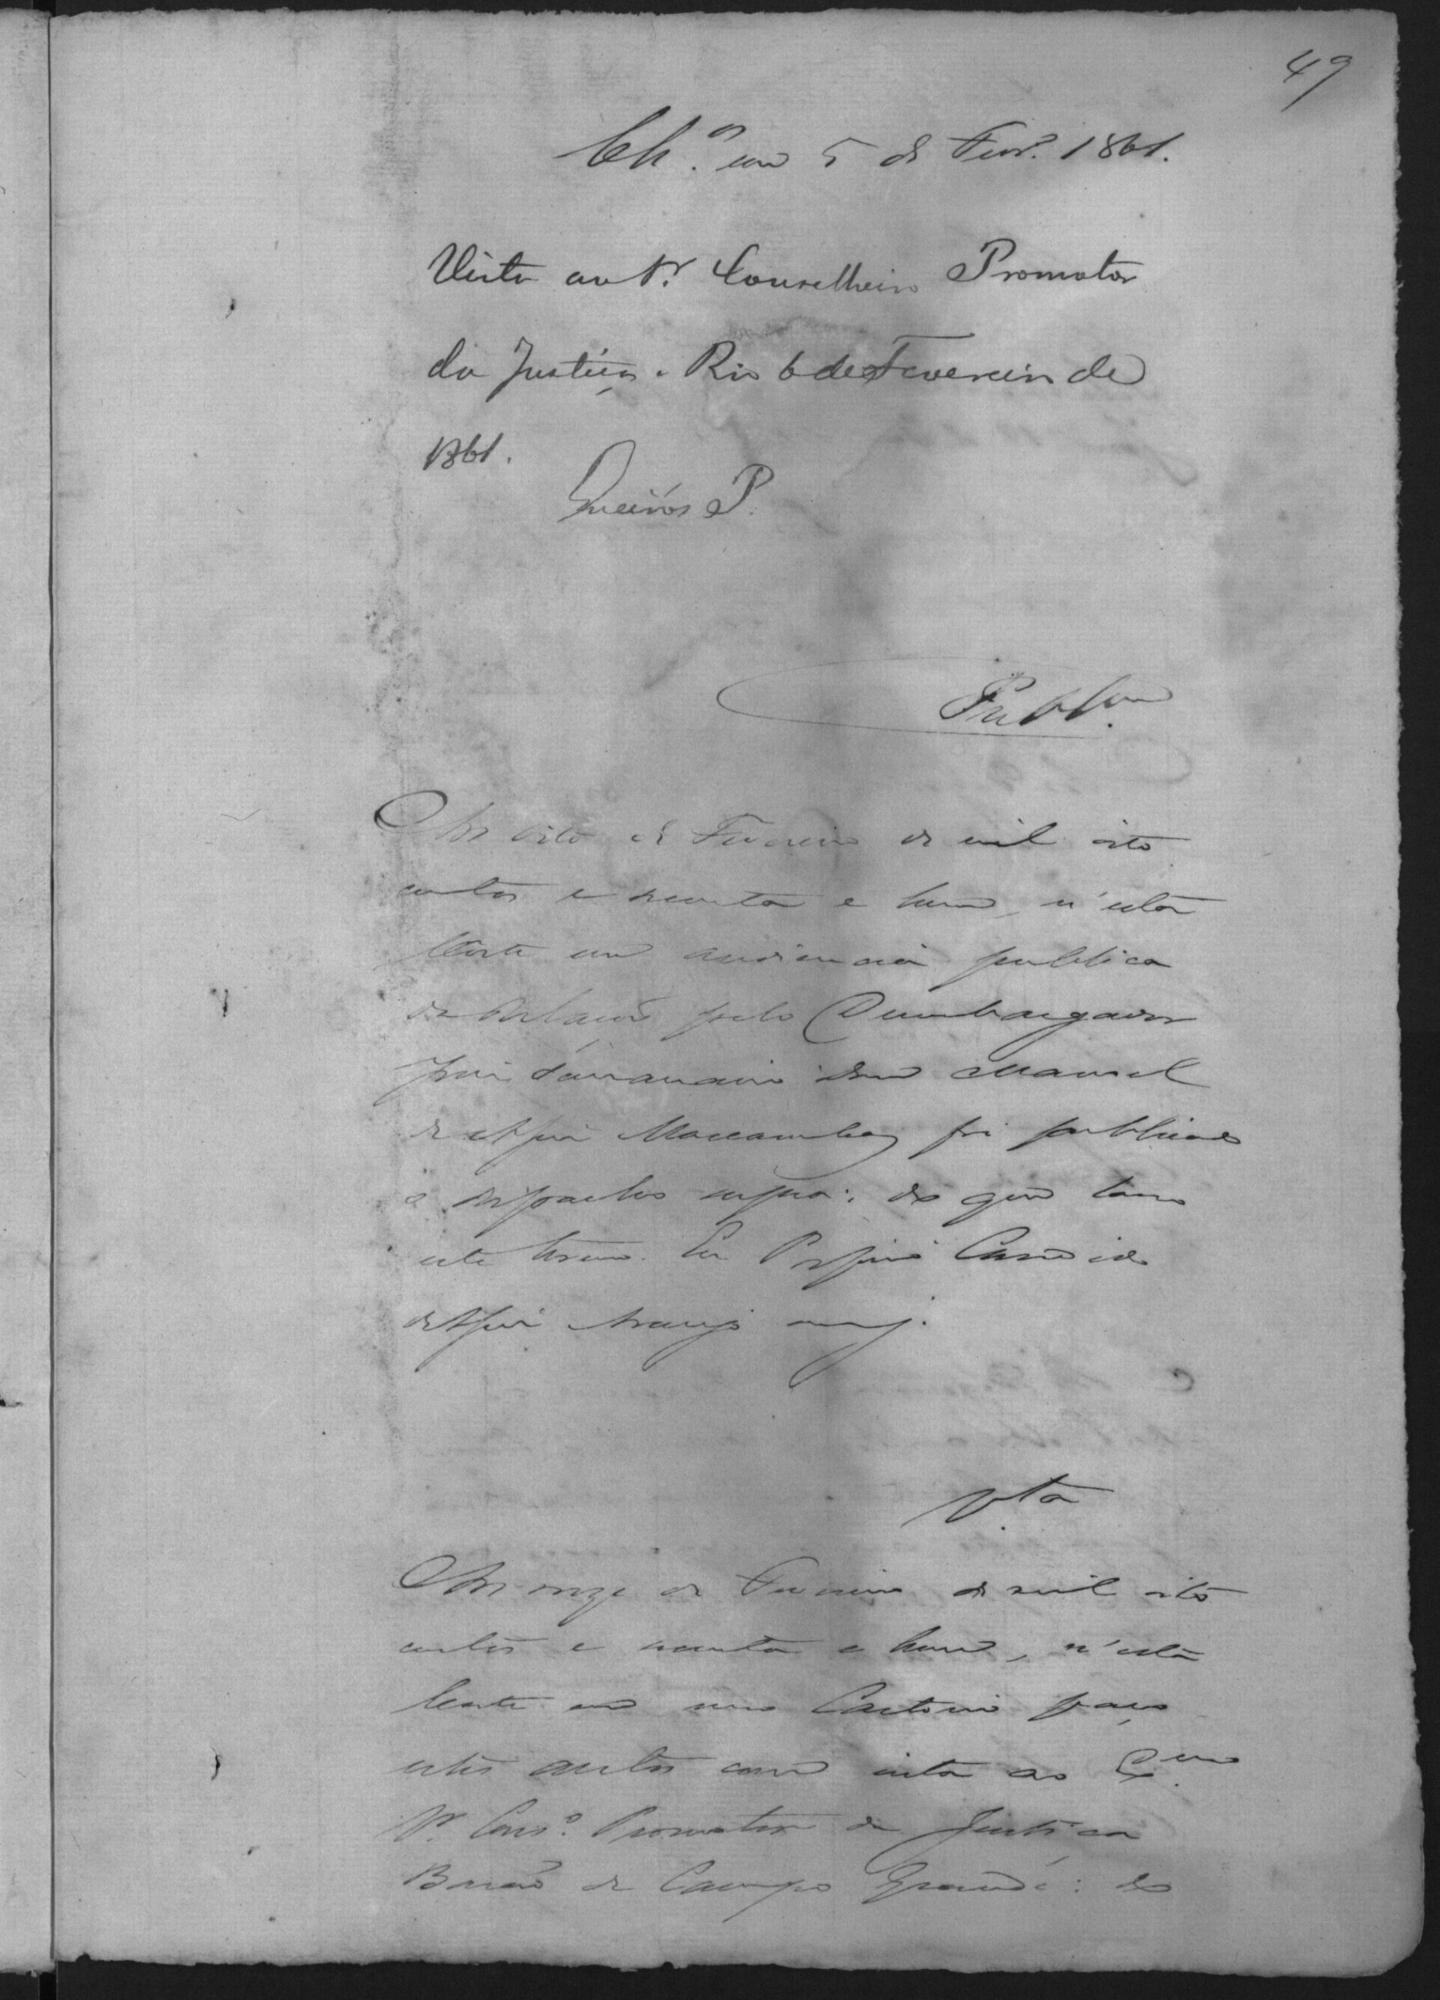 49
Cls.º em 5 de Fevr.º 1861.
Vista ao Sr. Conselheiro Promotor
da Justiça. Rio 6 de Fevereiro de
1861.
Queirós P.
Publ.am
Aos oito de Fevereiro de mil oito
centos e secenta e hum, n'esta
Côrte em audiencia publica
da Relação pelo Dezembargador
Juiz Semanario Manoel
de foi publicado
o despacho supra: do que lavro
este termo. Eu Candido
de Assis Araujo
V.ta
Aos onze de Fevereiro de mil oito
centos e secenta e hum, n'esta
Corte em meu Cartorio faço
estes autos com vista ao Ex.mo
Sr. Cons.º Promotor da Justiça
Barão de Campo Grande: do